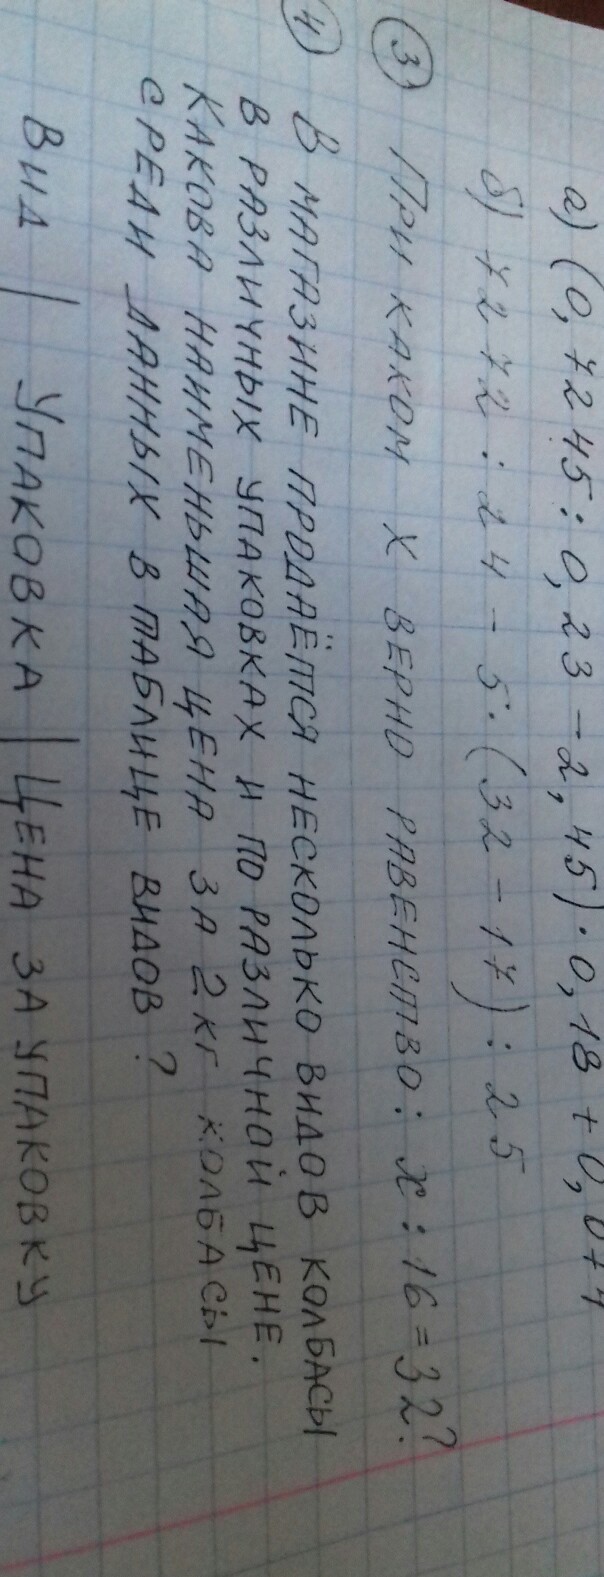 а) (0,7245 : 0,23 - 2,45) · 0,18 + 0,074
б) 7272 : 24 - 5 · (32 - 17) : 25
③ При каком х верно равенство: х : 16 = 32?
④ В магазине продаётся несколько видов колбасы
в различных упаковках и по различной цене.
Какова наименьшая цена за 2 кг колбасы
среди данных в таблице видов?
Вид | Упаковка | Цена за упаковку